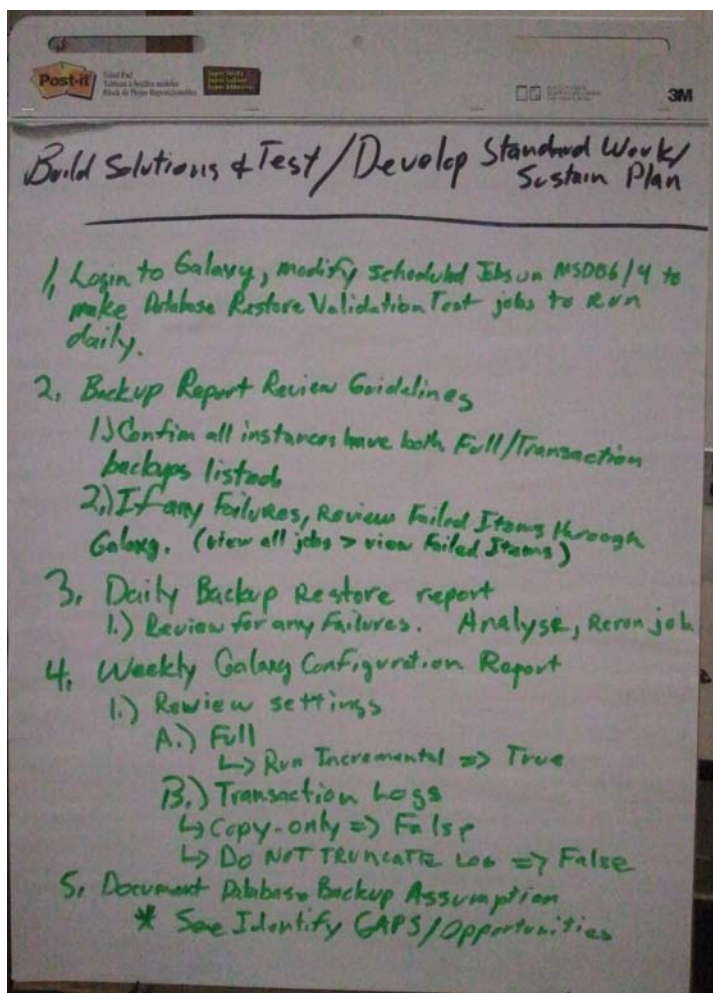 Post-it
Easel Pad
Tableau à feuilles mobiles
Super Sticky
3M
Build Solutions & Test/Develop Standard Work/
Sustain Plan
1, Login to Galaxy, modify scheduled Jobs on MSDB6/4 to
make Database Restore Validation Test jobs to Run
daily.
2, Backup Report Review Guidelines
1.) Confirm all instances have both Full/Transaction
backups listed.
2.) If any Failures, Review Failed Items through
Galaxy. (view all jobs > view Failed Items)
3. Daily Backup Restore report
1.) Review for any Failures. Analyse, Rerun job
4, Weekly Galaxy Configuration Report
1.) Review settings
A.) Full
↳ Run Incremental => True
B.) Transaction Logs
↳ Copy-only => False
↳ DO NOT TRUNCATE LOG => False
5, Document Database Backup Assumption
* See Identify GAPS/Opportunities